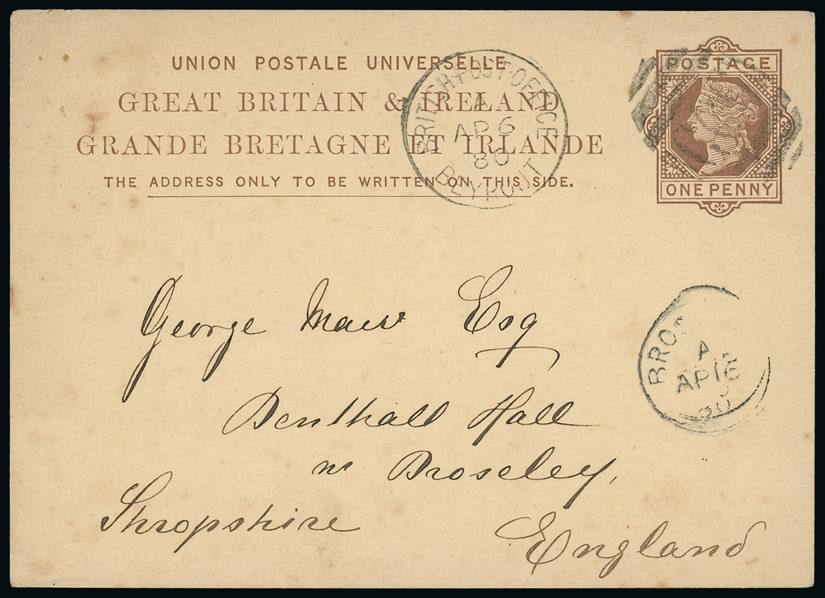 UNION POSTALE UNIVERSELLE
GREAT BRITAIN & IRELAND
GRANDE BRETAGNE ET IRLANDE
THE ADDRESS ONLY TO BE WRITTEN ON THIS SIDE.
BRITISH·POST·OFFICE
A
AP 6
80
BEYROUT
POSTAGE
ONE PENNY
George Maw Esq
Benthall Hall
nr Broseley,
Shropshire
England
BROS
A
AP 16
80